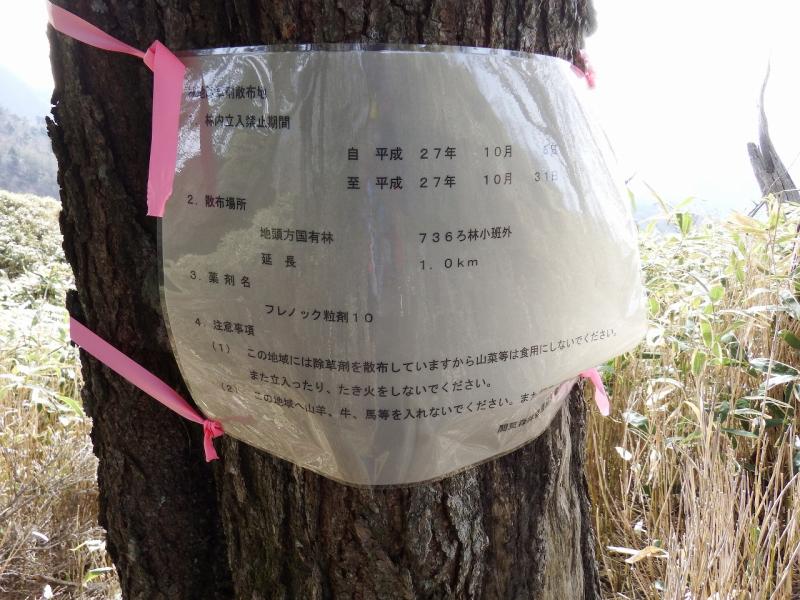 剤散布地
林内立入禁止期間
自 平成 27年 10月
至 平成 27年 10月 31日
2. 散布場所
地頭方国有林 736ろ林小班外
延長 1.0km
3. 薬剤名
フレノック粒剤10
4. 注意事項
(1) この地域には除草剤を散布していますから山菜等は食用にしないでください。
また立入ったり、たき火をしないでください。
(2) この地域へ山羊、牛、馬等を入れないでください。また